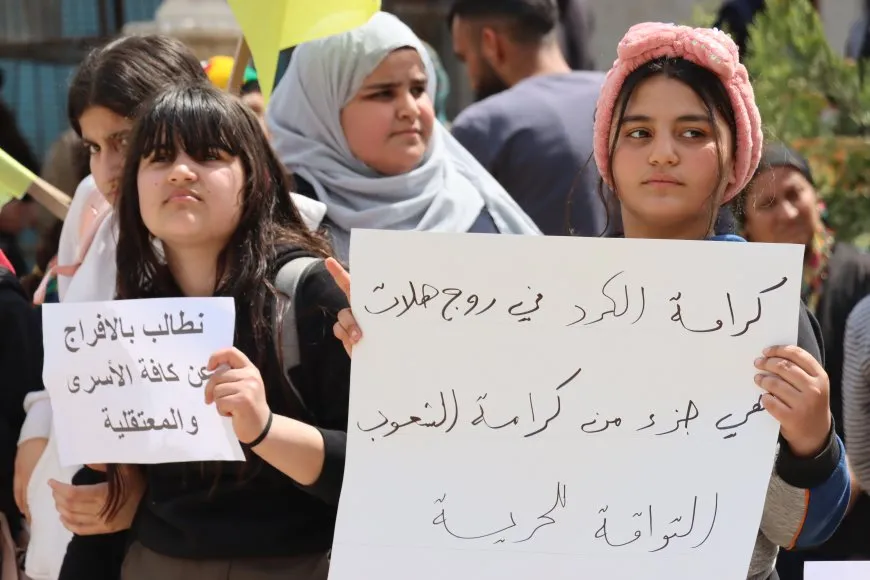 نطالب بالافراج
عن كافة الأسرى
والمعتقلية
كرامة الكرد في روج هلات
هي جزء من كرامة الشعوب
التواقة للحرية